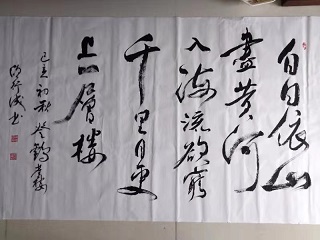 白日依山
盡黄河
入海流欲窮
千里目更
上一層楼
己亥初秋登鹳雀楼
书